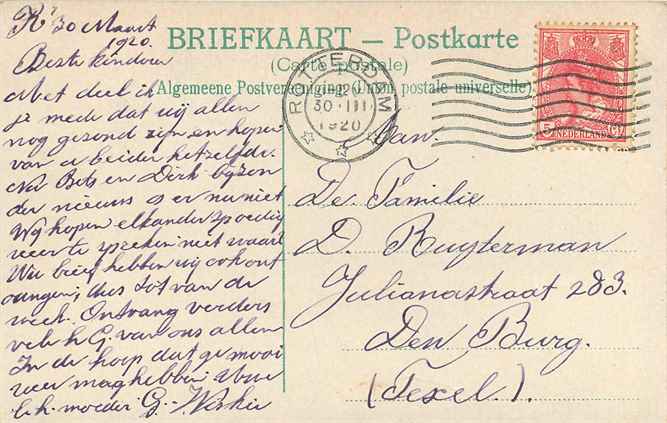 R' 30 Maart
1920.
Beste kinderen
Met deel ik
je mede dat wij allen
nog gezond zijn en hopen
van u beider hetzelfde.
Nu Bets en Dirk byzon
der nieuws is er nu niet
Wij hopen elkander spoedig
weer te spreken niet waar
Uw brief hebben wij ook ont
vangen, dus tot van de
week. Ontvang verders
vele h G. van ons allen
In de hoop dat ge mooi
weer mag hebben
h. moeder G.
BRIEFKAART — Postkarte
(Carte postale)
Algemeene Postvereeniging (Union postale universelle)
ROTTERDAM
30 III
1920
NEDERLAND
5 CT
Aan
De Familie
D. Ruyterman
Julianastraat 283.
Den Burg.
(Texel.).